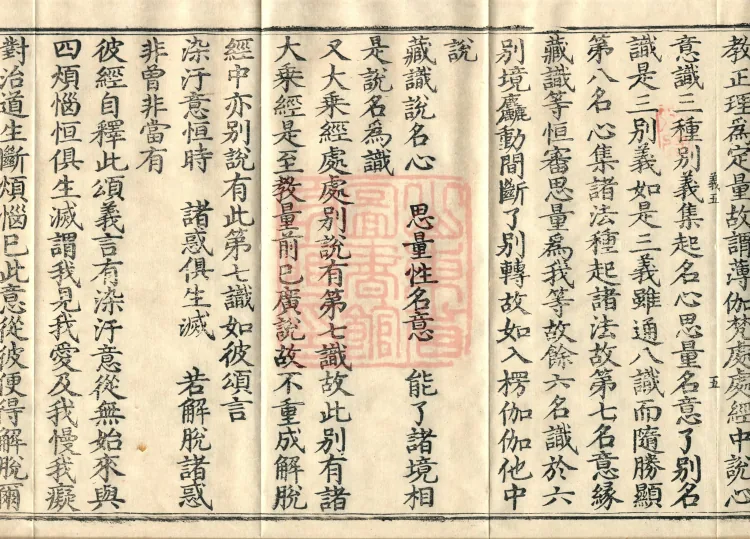 教正理爲定量故謂薄伽梵處處經中說心
意識三種別義集起名心思量名意了別名
識是三別義如是三義雖通八識而隨勝顯
第八名心集諸法種起諸法故第七名意緣
藏識等恒審思量爲我等故餘六名識於六
別境麤動間斷了別轉故如入楞伽伽他中
說
藏識說名心　思量性名意　能了諸境相
是說名爲識
又大乘經處處別說有第七識故此別有諸
大乘經是至教量前已廣說故不重成解脫
經中亦別說有此第七識如彼頌言
染汙意恒時　諸惑俱生滅　若解脫諸惑
非曾非當有
彼經自釋此頌義言有染汙意從無始來與
四煩惱恒俱生滅謂我見我愛及我慢我癡
對治道生斷煩惱已此意從彼便得解脫爾
義五
五